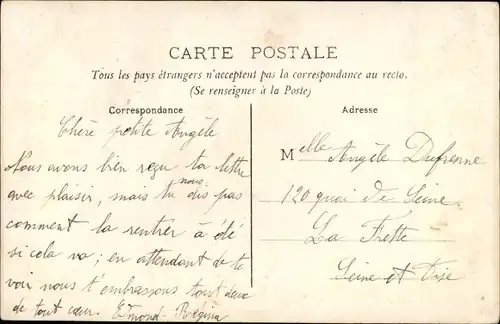 CARTE POSTALE
Tous les pays étrangers n'acceptent pas la correspondance au recto.
(Se renseigner à la Poste)
Correspondance
Chère petite Angèle
Nous avons bien reçu ta lettre
avec plaisir, mais tu nous dis pas
comment la rentrer à été
si cela va; en attendant de te
voir nous t'embrassons tout deux
de tout cœur. Edmond Régina
Adresse
Melle Angèle Dufrenne
120 quai de Seine
La Frette
Seine et Oise